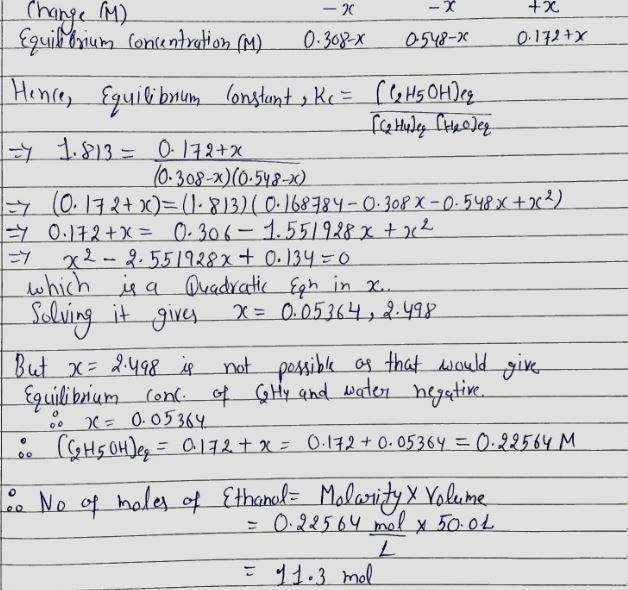 Change (M) -x -x +x
Equilibrium Concentration (M) 0.308-x 0.548-x 0.172+x
Hence, Equilibrium Constant, Kc = [C2H5OH]eq
[C2H4]eq [H2O]eq
=> 1.813 = 0.172+x
(0.308-x)(0.548-x)
=> (0.172+x)=(1.813)(0.168784-0.308x-0.548x+x²)
=> 0.172+x = 0.306-1.551928x+x²
=> x²-2.551928x+0.134=0
which is a Quadratic Eqn in x..
Solving it gives x= 0.05364, 2.498
But x= 2.498 is not possible as that would give
Equilibrium conc. of C2H4 and water negative.
∴ x= 0.05364
∴ [C2H5OH]eq = 0.172+x = 0.172+0.05364 = 0.22564 M
∴ No of moles of Ethanol= Molarity x Volume
= 0.22564 mol x 50.0L
L
= 11.3 mol